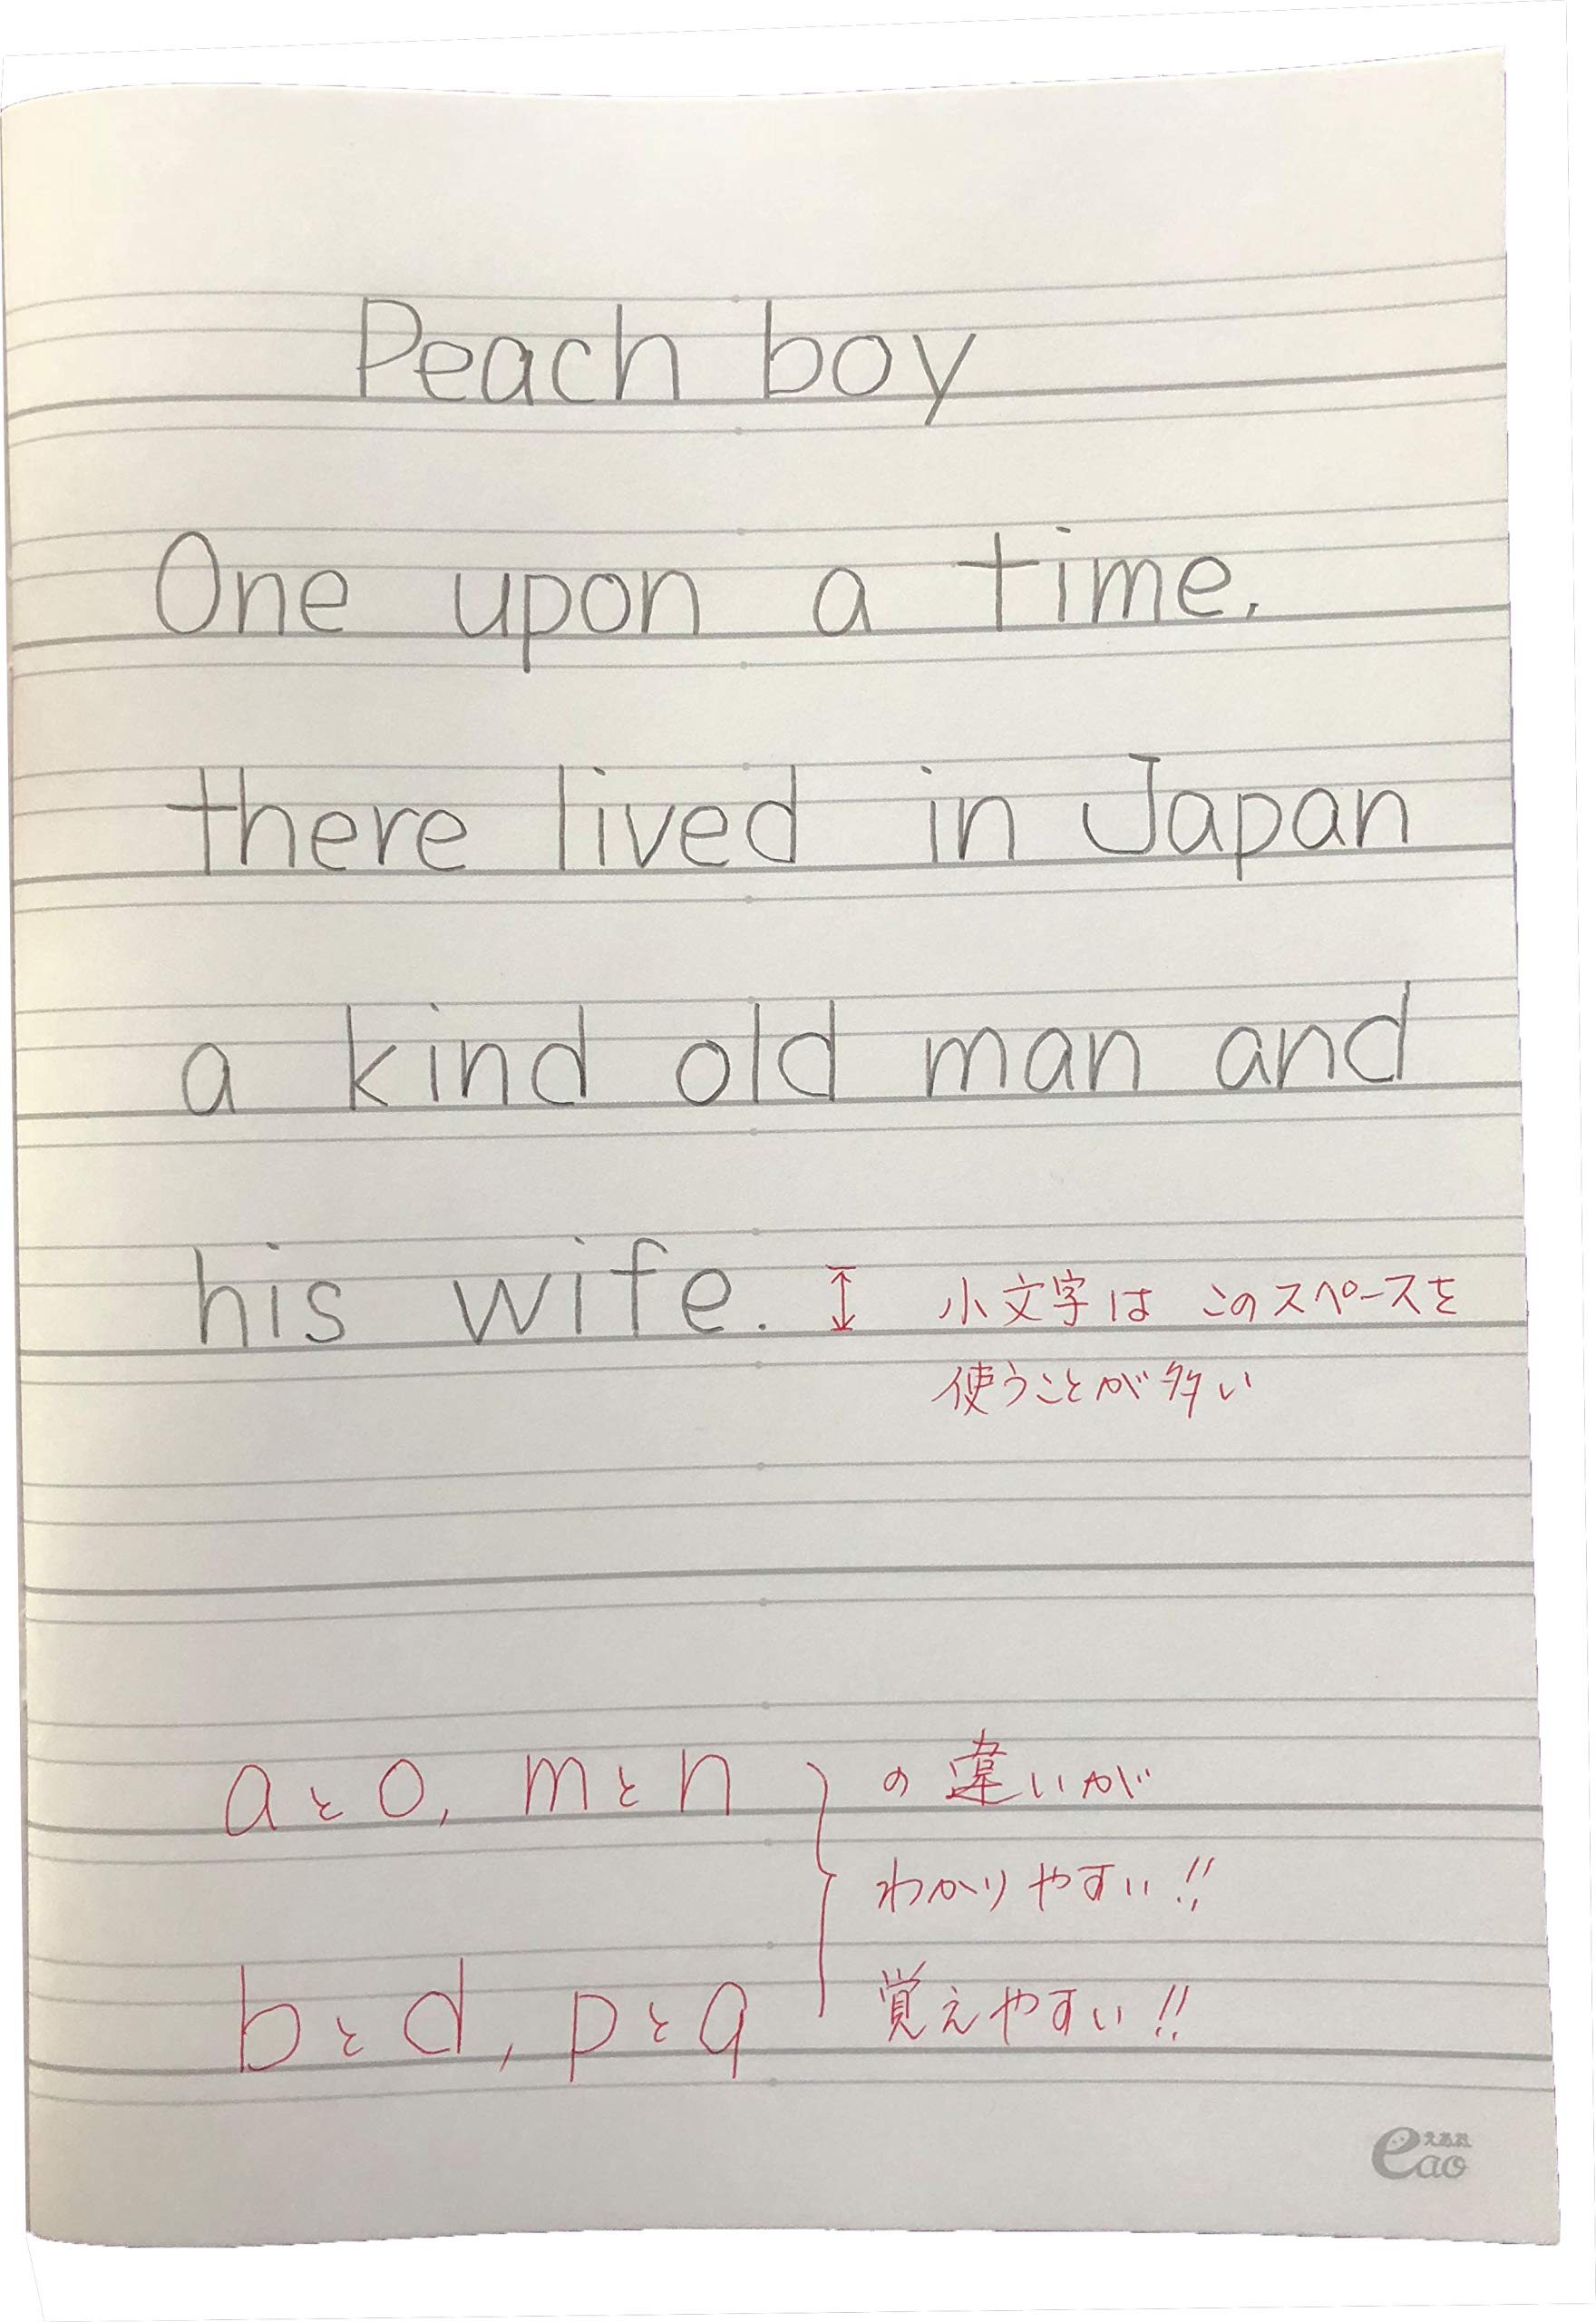 Peach boy
One upon a time,
there lived in Japan
a kind old man and
his wife. 小文字は このスペースを
使うことが多い
aとo, mとn の違いが
わかりやすい!!
bとd, pとq 覚えやすい!!
えあお
eao